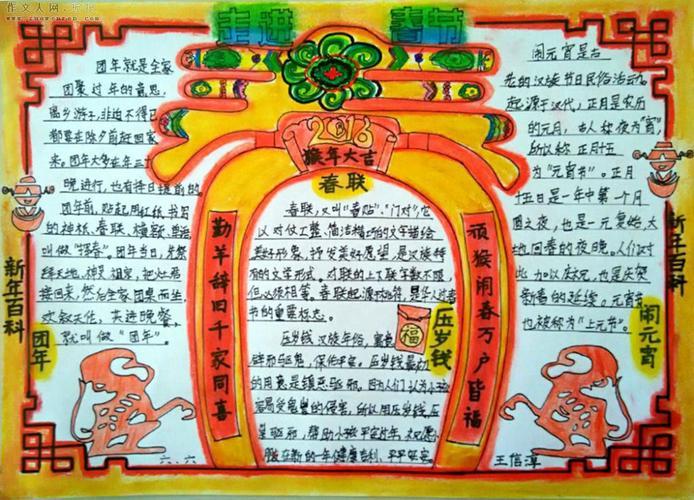 作文人网
走进 春节
2016
猴年大吉
春联
春联，又叫"春贴"、"门对"，它
以对仗工整、简洁精巧的文字描绘
美好形象，抒发美好愿望，是汉族特
有的文学形式。对联的上下联字数不限，
但必须相等。春联起源桃符，是华人过春
节的重要标志。
福
压岁钱
压岁钱 汉族年俗，寓意
辟邪驱鬼，保佑平安。压岁钱最初
的用意是镇恶驱邪。因为人们认为小孩
容易受鬼祟的侵害，所以用压岁钱压
祟驱邪，帮助小孩平安过年，祝愿小
孩在新的一年健康吉利、平平安安
勤羊辞旧千家同喜
顽猴闹春万户皆福
新年百科
团年
团年就是全家
团聚过年的意思，
离乡游子，非迫不得已
都要在除夕前赶回家
来。团年大多在年三十
晚进行，也有待日提前的
团年前，贴起用红纸书写
的神标、春联、横额、
叫做"挥春"。团年当日，先祭
拜天地、神灵、祖宗，把灶君
接回来，然后全家团桌而坐，
共进晚餐，
就叫做"团年"。
新年百科
闹元宵
闹元宵是古
老的汉族节日民俗活动。
起源于汉代，正月是农历
的元月，古人称夜为"宵"，
所以称正月十五
为"元宵节"。正月
十五日是一年中第一个月
圆之夜，也是一元复始，大
地回春的夜晚。人们对
此加以庆祝，也是庆贺
新春的延续。元宵节
也被称为"上元节"。
六、六
王信淳